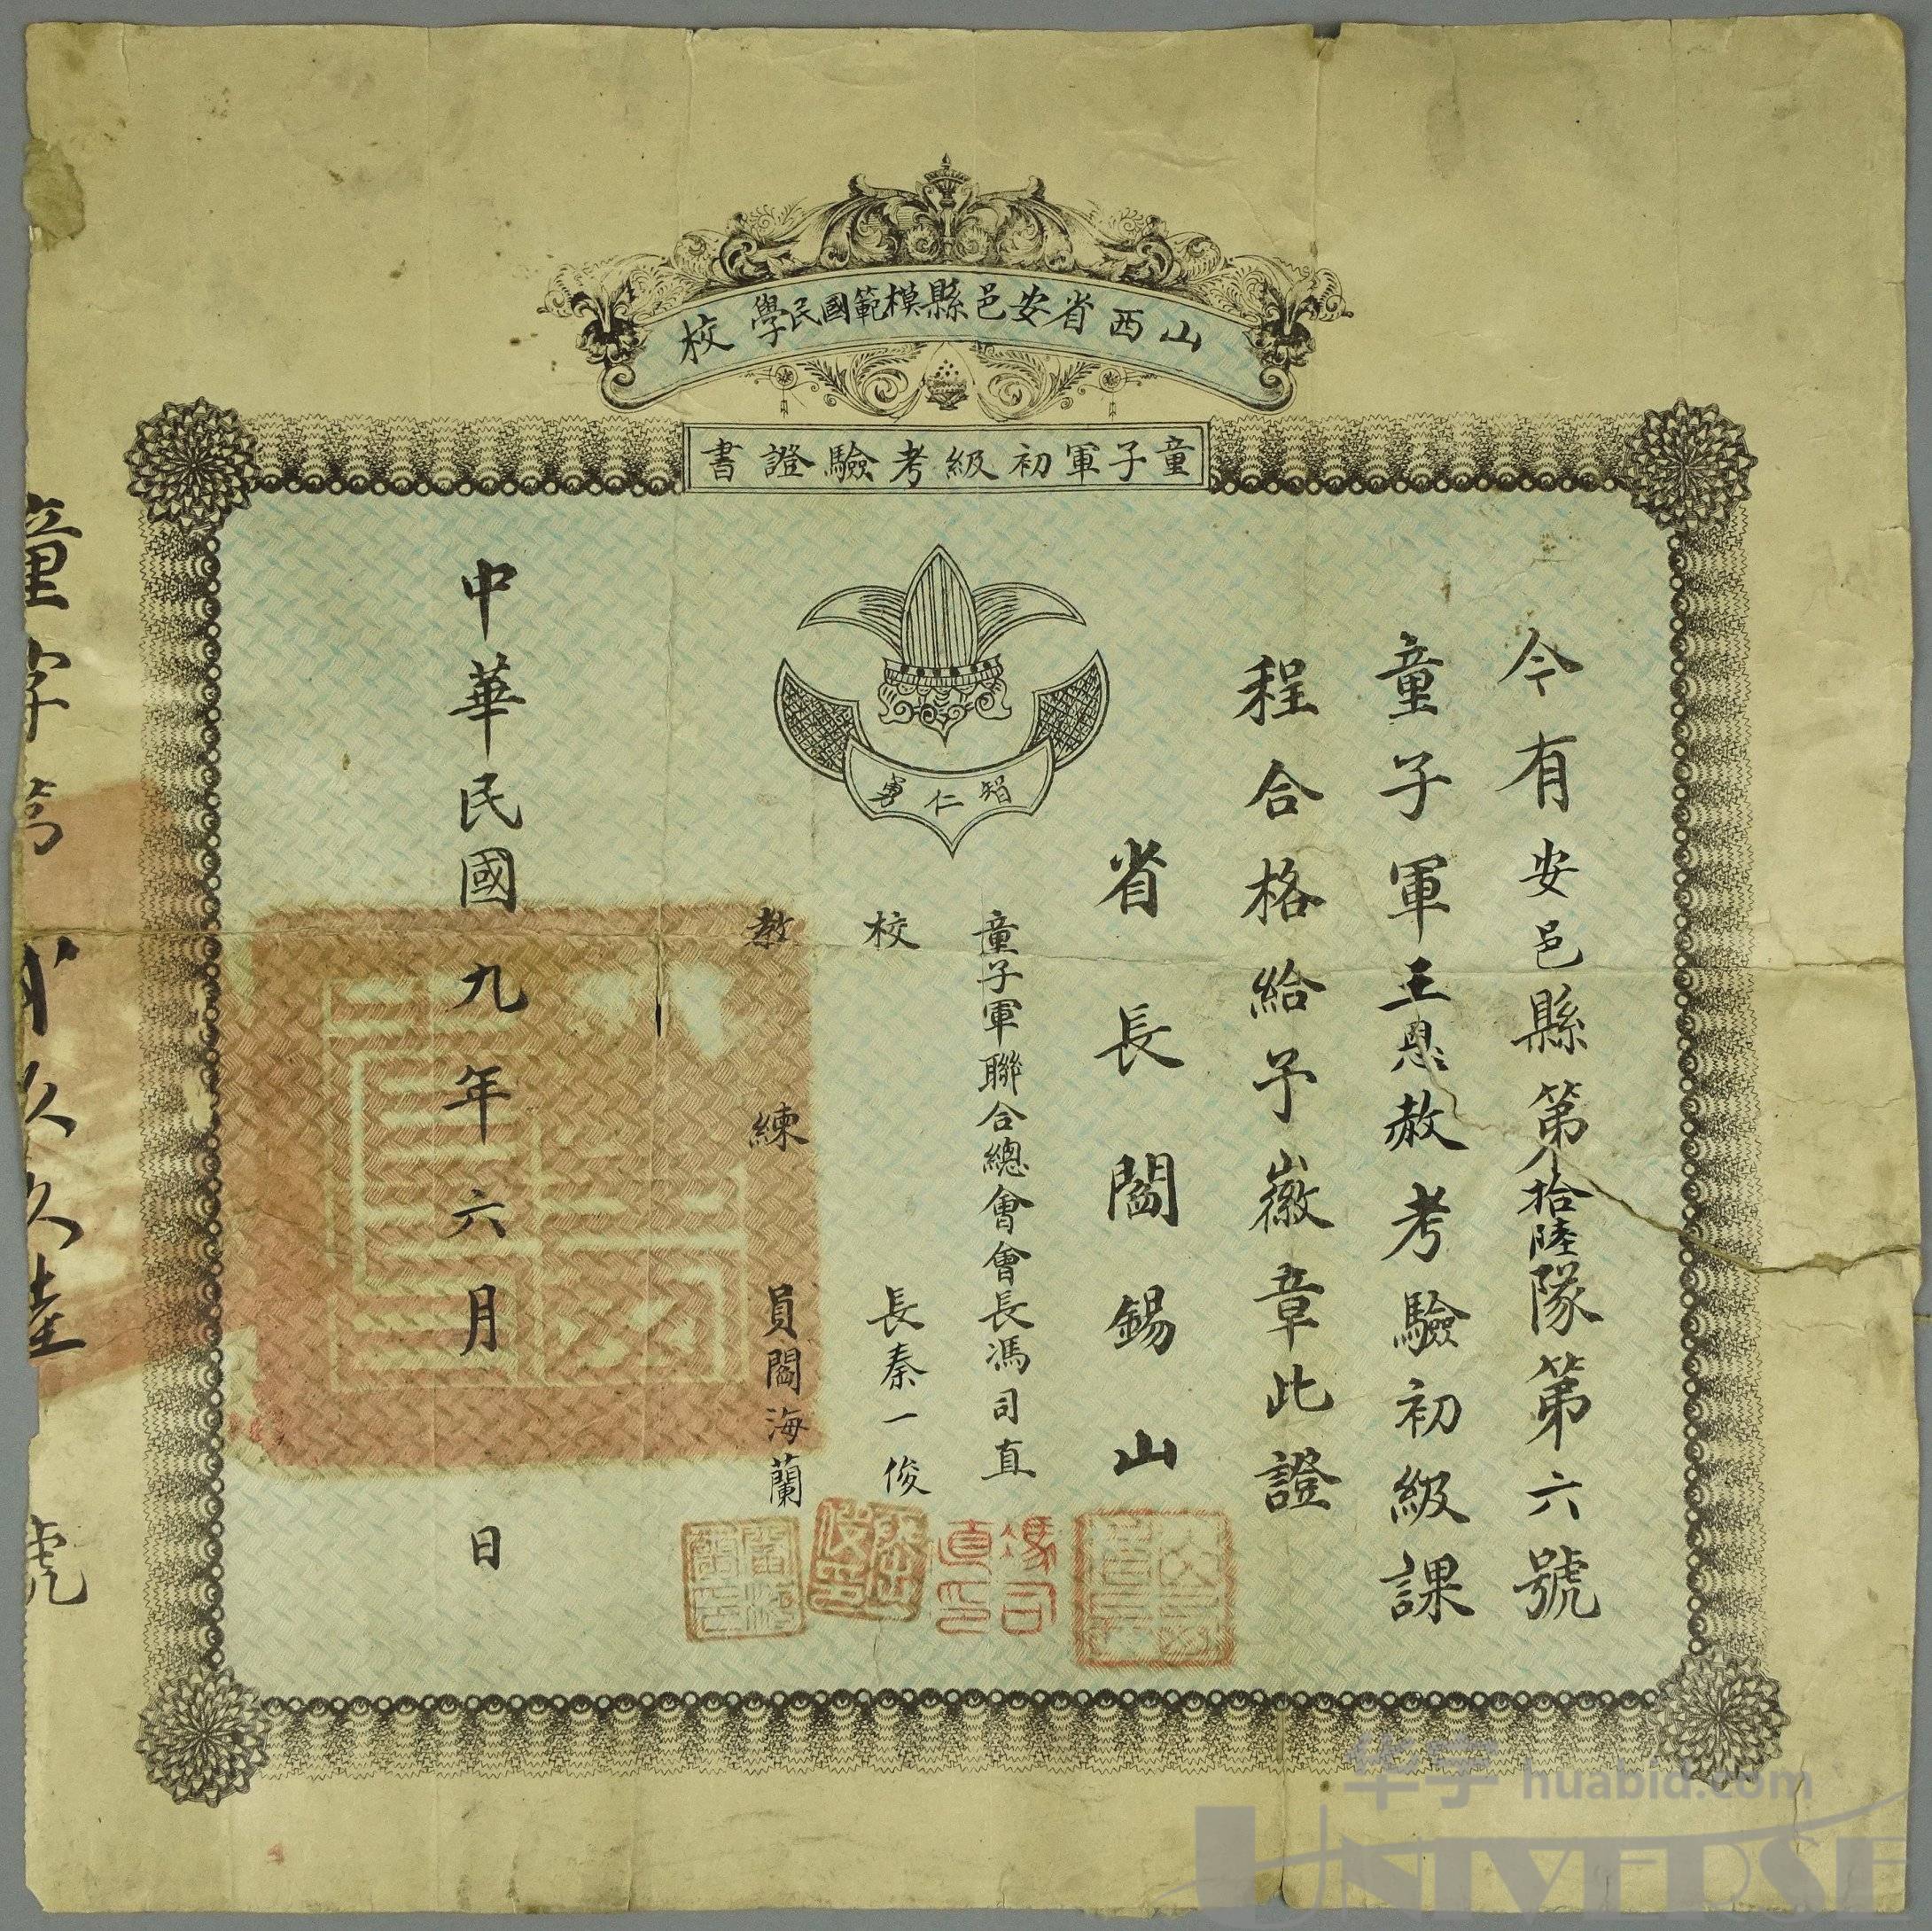 山西省安邑縣模範國民學校
童子軍初級考驗證書
智仁勇
今有安邑縣第拾陸隊第六號
童子軍王恩赦考驗初級課
程合格給予徽章此證
省長閻錫山
童子軍聯合總會會長馮司直
校長秦一俊
教練員閻海蘭
中華民國九年六月日
馮司直印
童字第 玖玖陸號
华宇 huabid.com
UNIVERSE